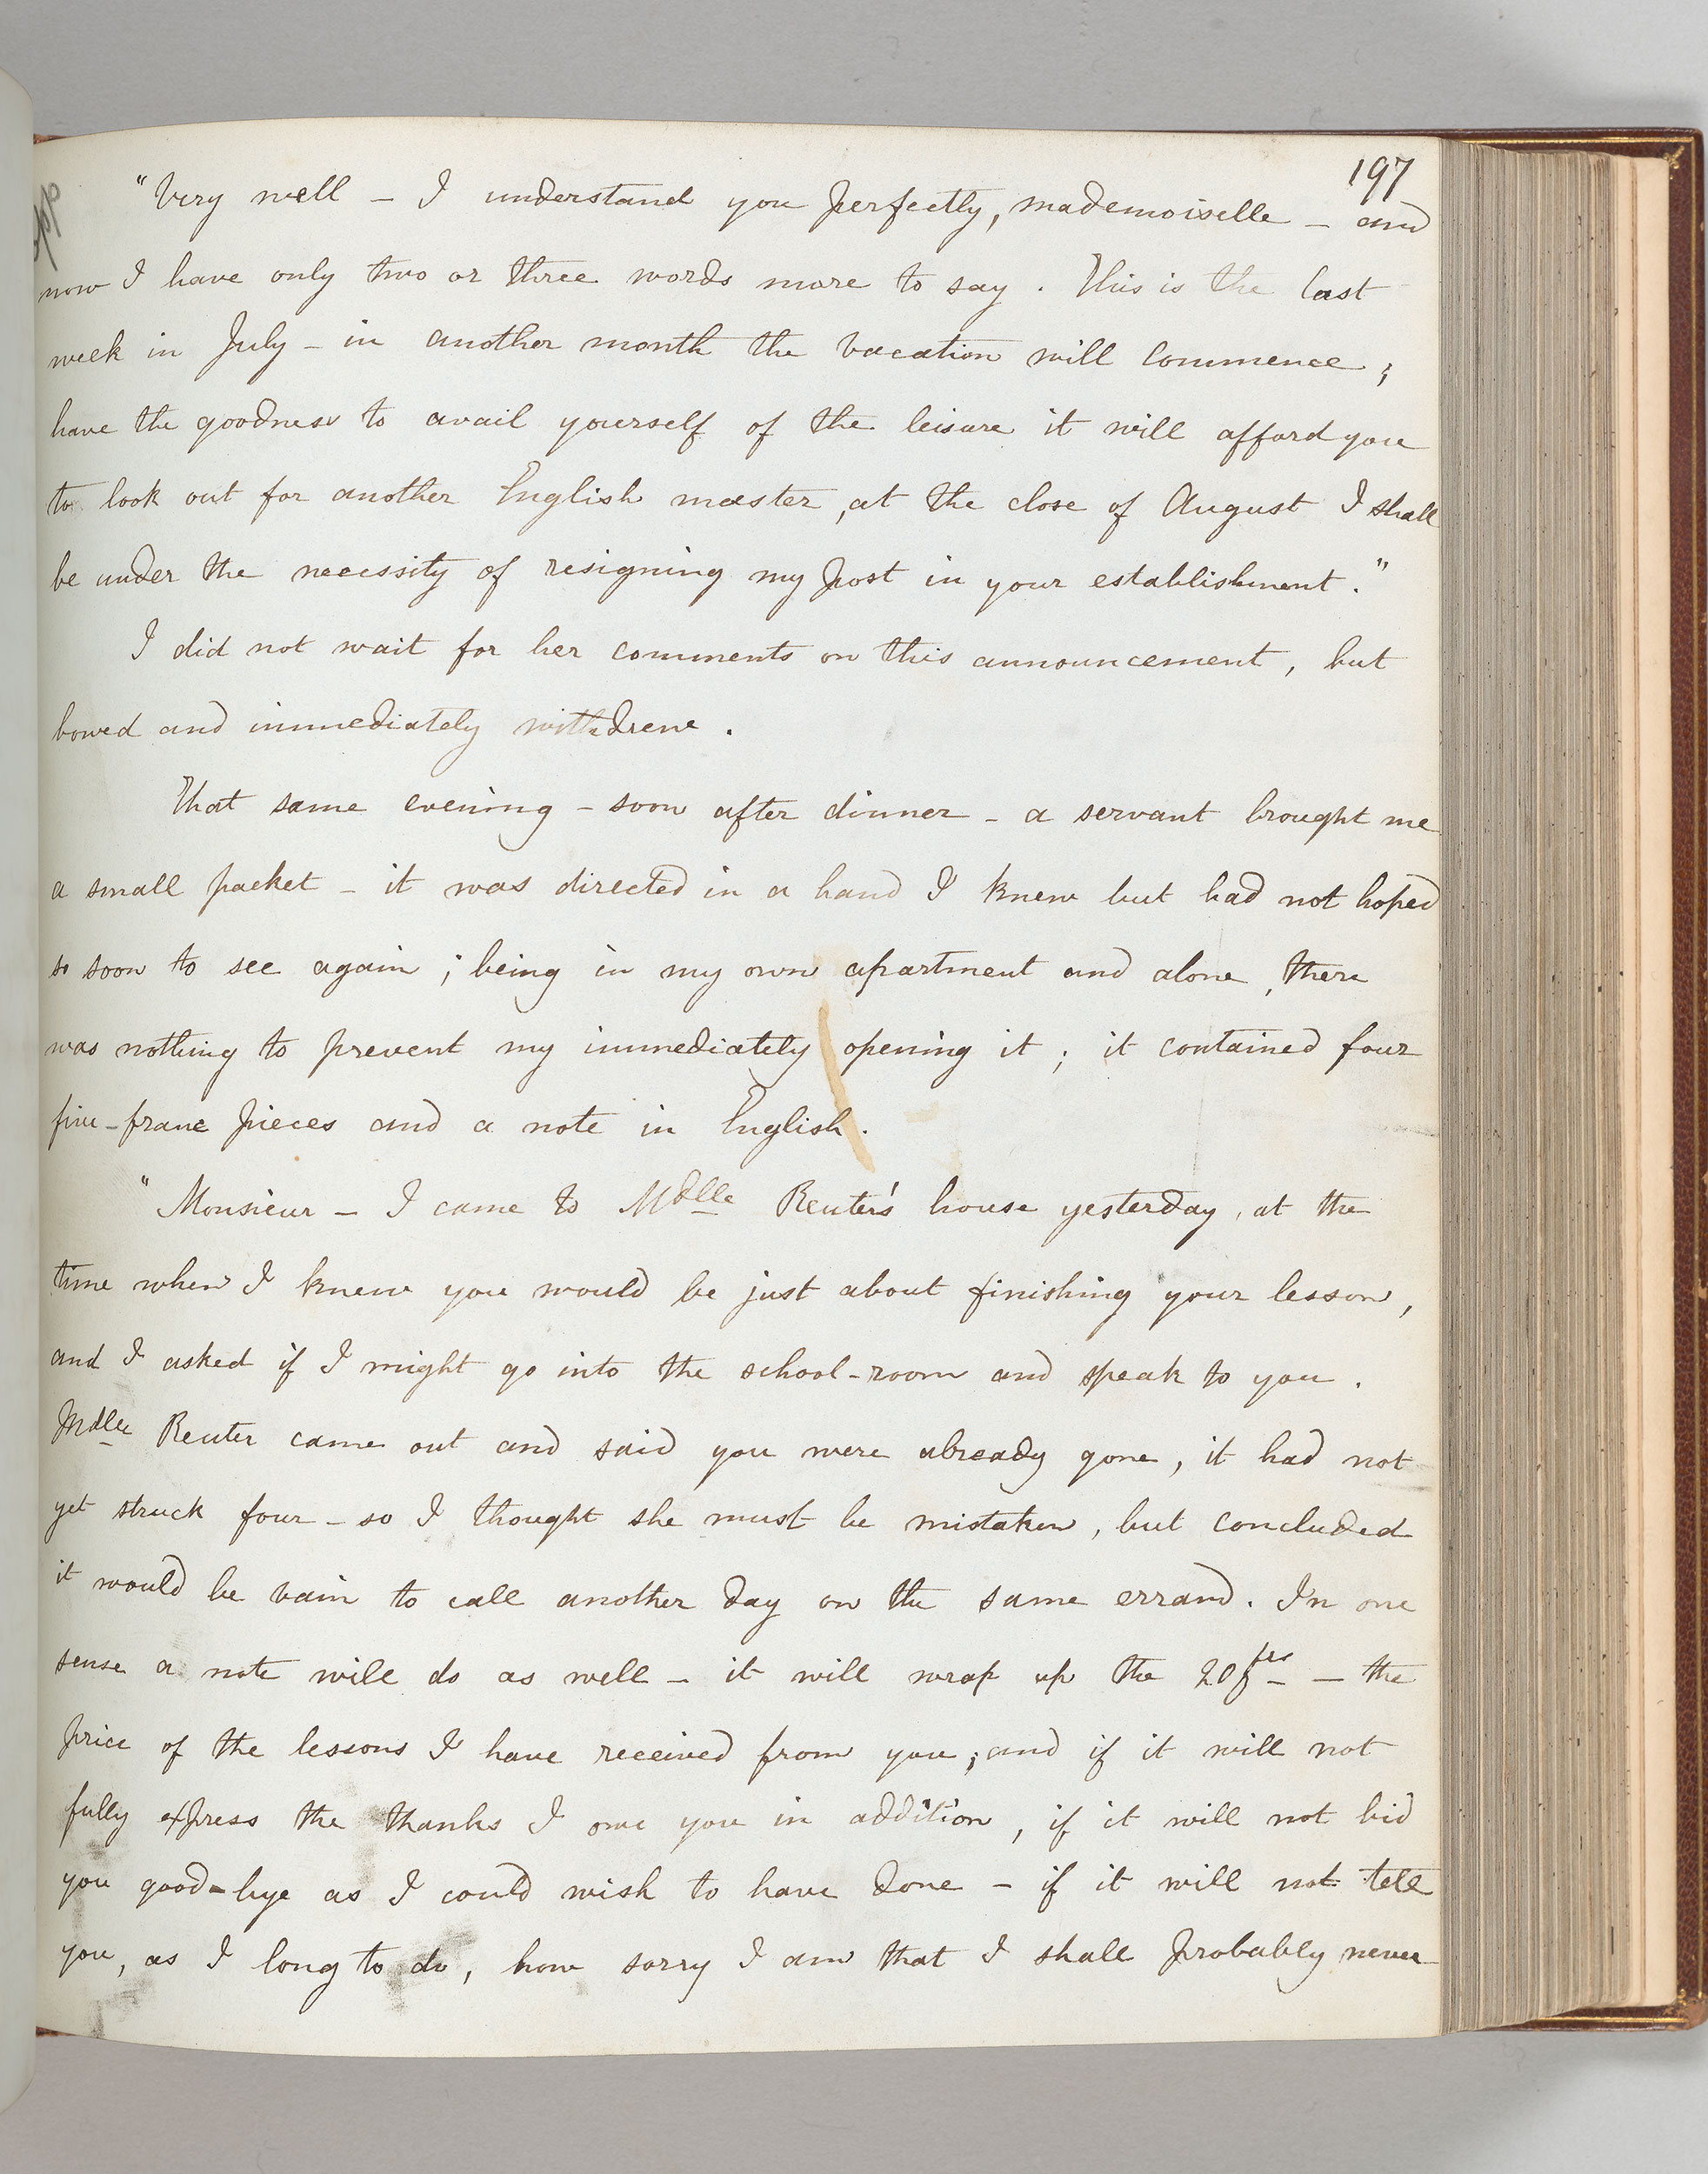 197
"Very well – I understand you perfectly, mademoiselle – and
now I have only two or three words more to say. This is the last
week in July – in another month the vacation will commence;
have the goodness to avail yourself of the leisure it will afford you
to look out for another English master, at the close of August I shall
be under the necessity of resigning my post in your establishment."
I did not wait for her comments on this announcement, but
bowed and immediately withdrew.
That same evening – soon after dinner – a servant brought me
a small packet – it was directed in a hand I knew but had not hoped
so soon to see again; being in my own apartment and alone, there
was nothing to prevent my immediately opening it; it contained four
five-franc pieces and a note in English.
"Monsieur – I came to Mdlle Reuter's house yesterday, at the
time when I knew you would be just about finishing your lesson,
and I asked if I might go into the school-room and speak to you.
Mdlle Reuter came out and said you were already gone, it had not
yet struck four – so I thought she must be mistaken, but concluded
it would be vain to call another day on the same errand. In one
sense a note will do as well – it will wrap up the 20 frcs – the
price of the lessons I have received from you; and if it will not
fully express the thanks I owe you in addition, if it will not bid
you good-bye as I could wish to have done – if it will not tell
you, as I long to do, how sorry I am that I shall probably never